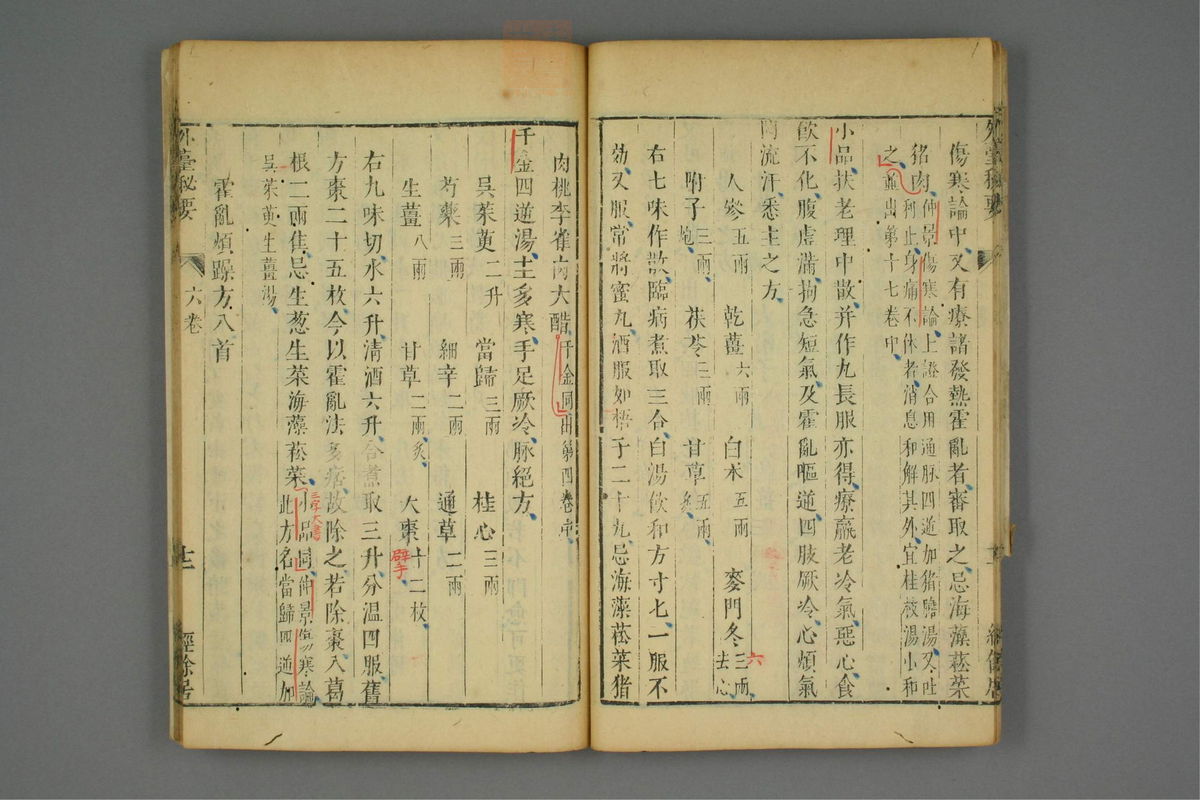 外臺秘要
傷寒論中又有療諸發熱霍亂者審取之忌海藻菘菜
猪肉 仲景傷寒論上證合用通脉四逆加猪膽湯又吐
利止身痛不休者消息和解其外宜桂枝湯小和
之並出第十七卷中
小品扶老理中散并作丸長服亦得療羸老冷氣惡心食
飲不化腹虛滿拘急短氣及霍亂嘔逆四肢厥冷心煩氣
悶流汗悉主之方
人參五兩 乾薑六兩 白朮五兩 麥門冬三兩去心
六
附子三兩炮 茯苓三兩 甘草五兩炙
右七味作散臨病煮取三合白湯飲和方寸匕一服不
効又服常將蜜丸酒服如梧子二十丸忌海藻菘菜猪
肉桃李雀肉大醋 千金同出第四卷中
千金四逆湯主多寒手足厥冷脉絕方
吳茱萸二升 當歸三兩 桂心三兩
芍藥三兩 細辛二兩 通草二兩
生薑八兩 甘草二兩炙 大棗十二枚
擘
右九味切水六升清酒六升合煮取三升分温四服舊
方棗二十五枚今以霍亂法多痞故除之若除棗入葛
根二兩佳忌生葱生菜海藻菘菜 小品同仲景傷寒論
此方名當歸四逆加
吳茱萸生薑湯
霍亂煩躁方八首
外臺秘要 六卷 十二 經餘居